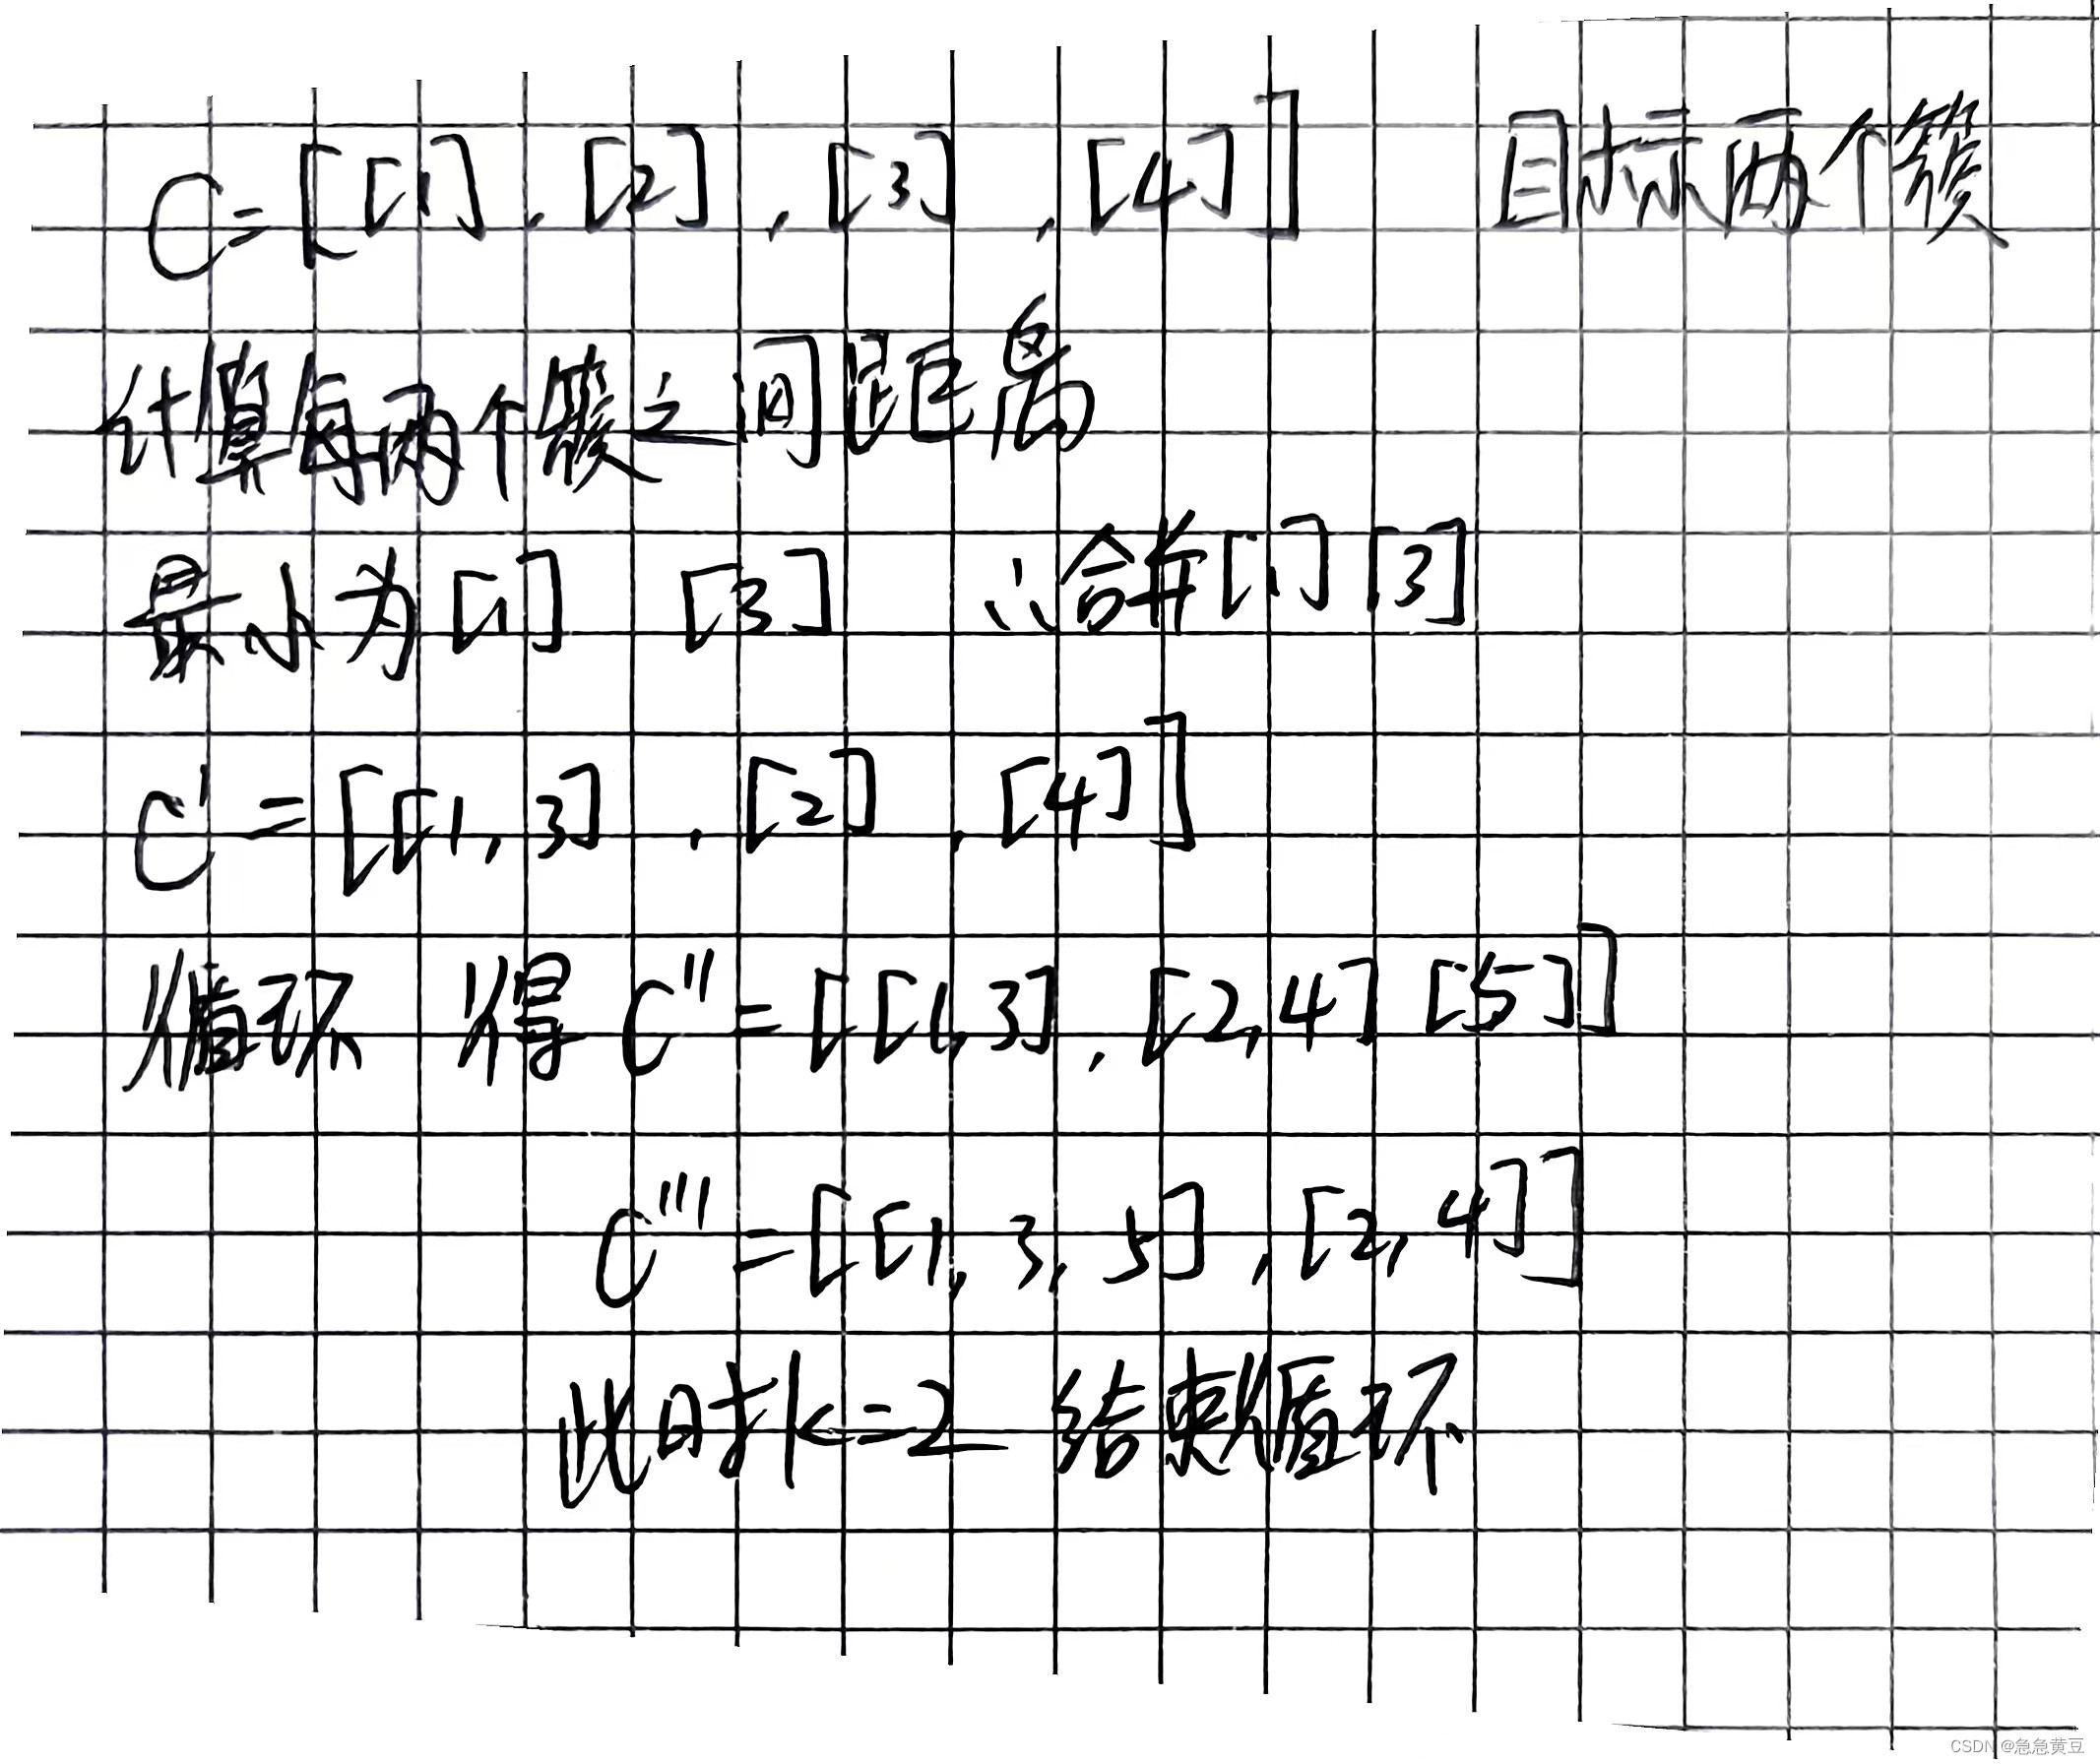 C=[[1],[2],[3],[4]] 目标两个簇
计算每两个簇之间距离
最小为[1] [3] ∴合并[1][3]
C'=[[1,3],[2],[4]]
循环 得 C''=[[1,3],[2,4][5]]
C'''=[[1,3,5],[2,4]]
此时k=2 结束循环
CSDN @急急黄豆